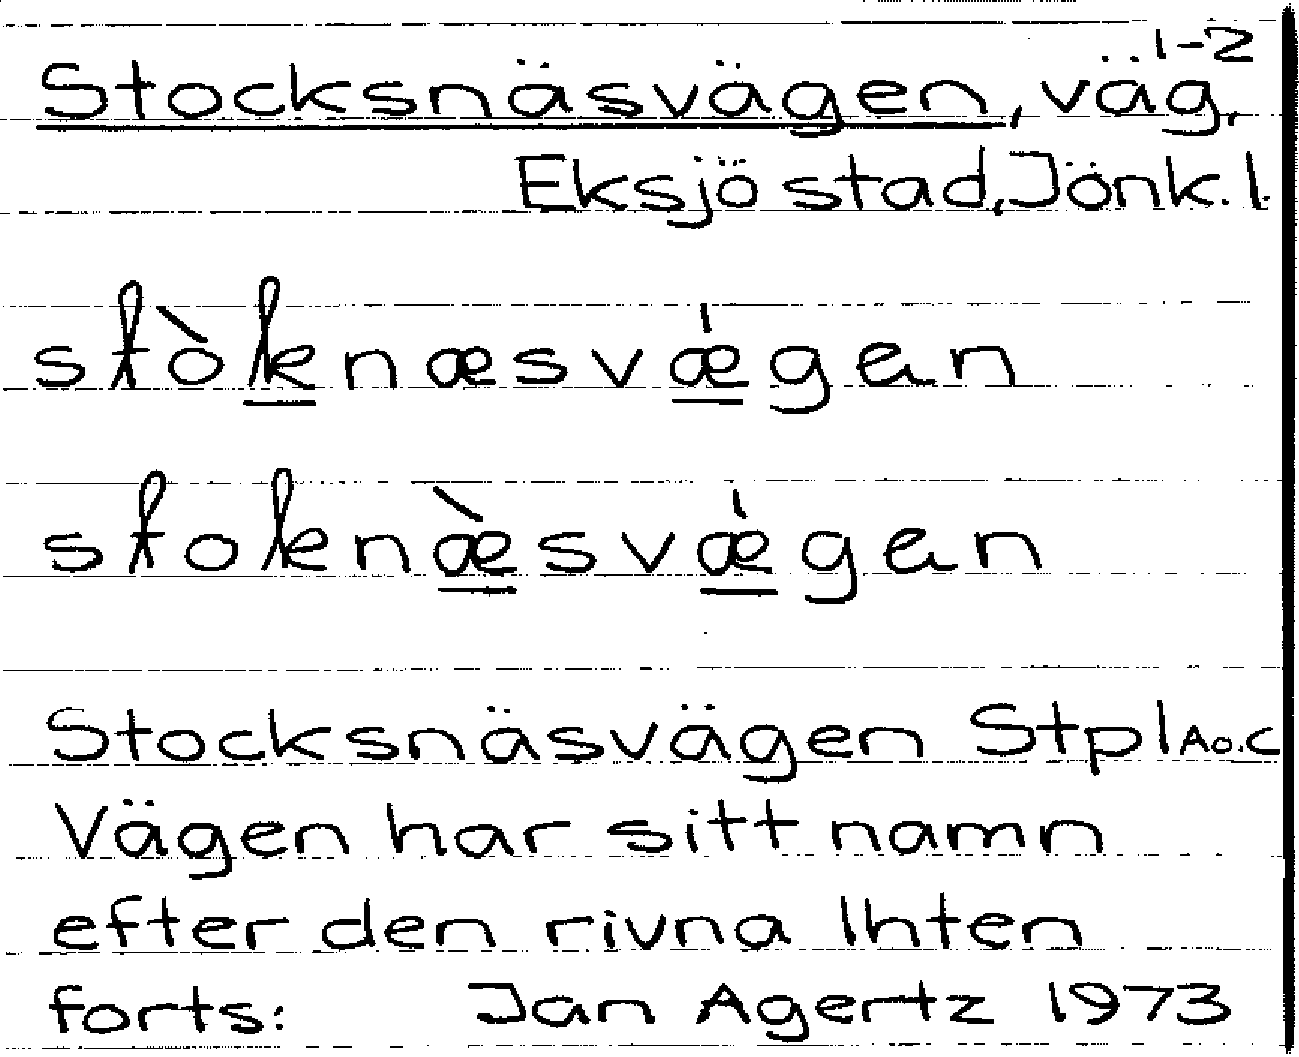 1-2
Stocksnäsvägen, väg,
Eksjö stad, Jönk. l.
stòknæsvǽgen
stoknæ̀svǽgen
Stocksnäsvägen Stpl A o. C
Vägen har sitt namn
efter den rivna lhten
forts: Jan Agertz 1973